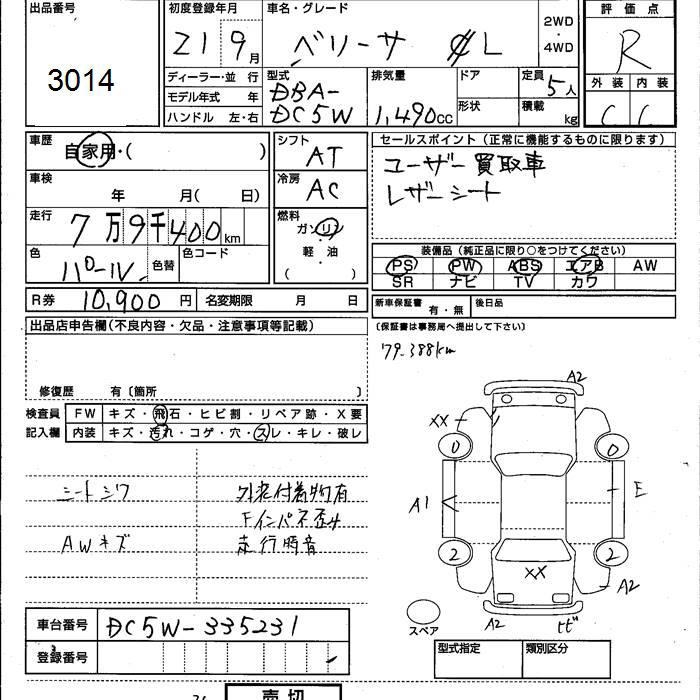 出品番号
3014
初度登録年月
21 9月
車名・グレード
ベリーサ
L
2WD
・
4WD
評価点
R
外装 内装
C C
ディーラー・並行
モデル年式 年
ハンドル 左・右
型式
DBA-
DC5W
排気量
1,490cc
ドア
形状
定員
5人
積載
kg
車歴
自家用・( )
車検
年 月( 日)
走行
7万9千400km
色
パール
色替
色コード
R券 10,900円
名変期限 月 日
シフト
AT
冷房
AC
燃料
ガソリン
軽・油
( )
セールスポイント(正常に機能するものに限ります)
ユーザー買取車
レザーシート
装備品(純正品に限り○をつけてください)
PS PW ABS エアB AW
SR ナビ TV カワ
新車保証書 有・無 後日品
(保証書は事務局へ提出して下さい)
出品店申告欄(不良内容・欠品・注意事項等記載)
修復歴 有〔箇所 〕
79,388km
検査員 FW キズ・飛石・ヒビ割・リペア跡・X要
記入欄 内装 キズ・汚れ・コゲ・穴・スレ・キレ・破レ
シートシワ
AWキズ
外装付着物有
Fインパネ歪み
走行時音
A2
XX
0
0
A1
E
2
2
XX
A2
A2
ヒビ
スペア
車台番号 DC5W-335231
登録番号
型式指定 類別区分
売切